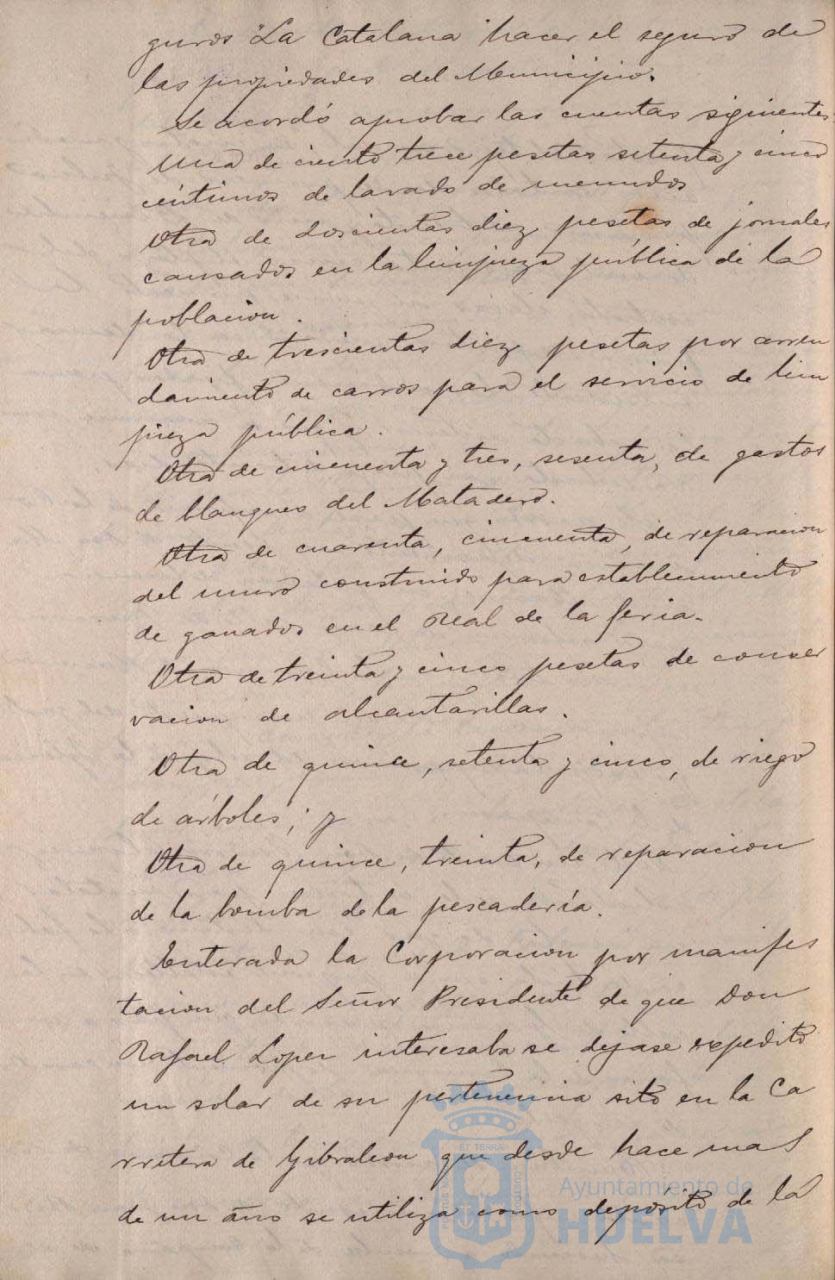 guros "La Catalana" hacer el seguro de
las propiedades del Municipio.
Se acordó aprobar las cuentas siguientes.
Una de ciento trece pesetas setenta y cinco
céntimos de lavado de menudos
Otra de doscientas diez pesetas de jornales
causados en la limpieza pública de la
poblacion.
Otra de trescientas diez pesetas por arren
damiento de carros para el servicio de lim
pieza pública.
Otra de cincuenta y tres, sesenta, de gastos
de blanqueo del Matadero.
Otra de cuarenta, cincuenta, de reparacion
del muro construido para establecimiento
de ganados en el Real de la feria.
Otra de treinta y cinco pesetas de conser
vacion de alcantarillas.
Otra de quince, setenta y cinco, de riego
de árboles; y
Otra de quince, treinta, de reparacion
de la bomba de la pescadería.
Enterada la Corporacion por manifes
tacion del Señor Presidente de que Don
Rafael Lopez interesaba se dejase expedito
un solar de su pertenencia sito en la Ca
rretera de Gibraleon que desde hace mas
de un año se utiliza como depósito de la
Ayuntamiento de
HUELVA